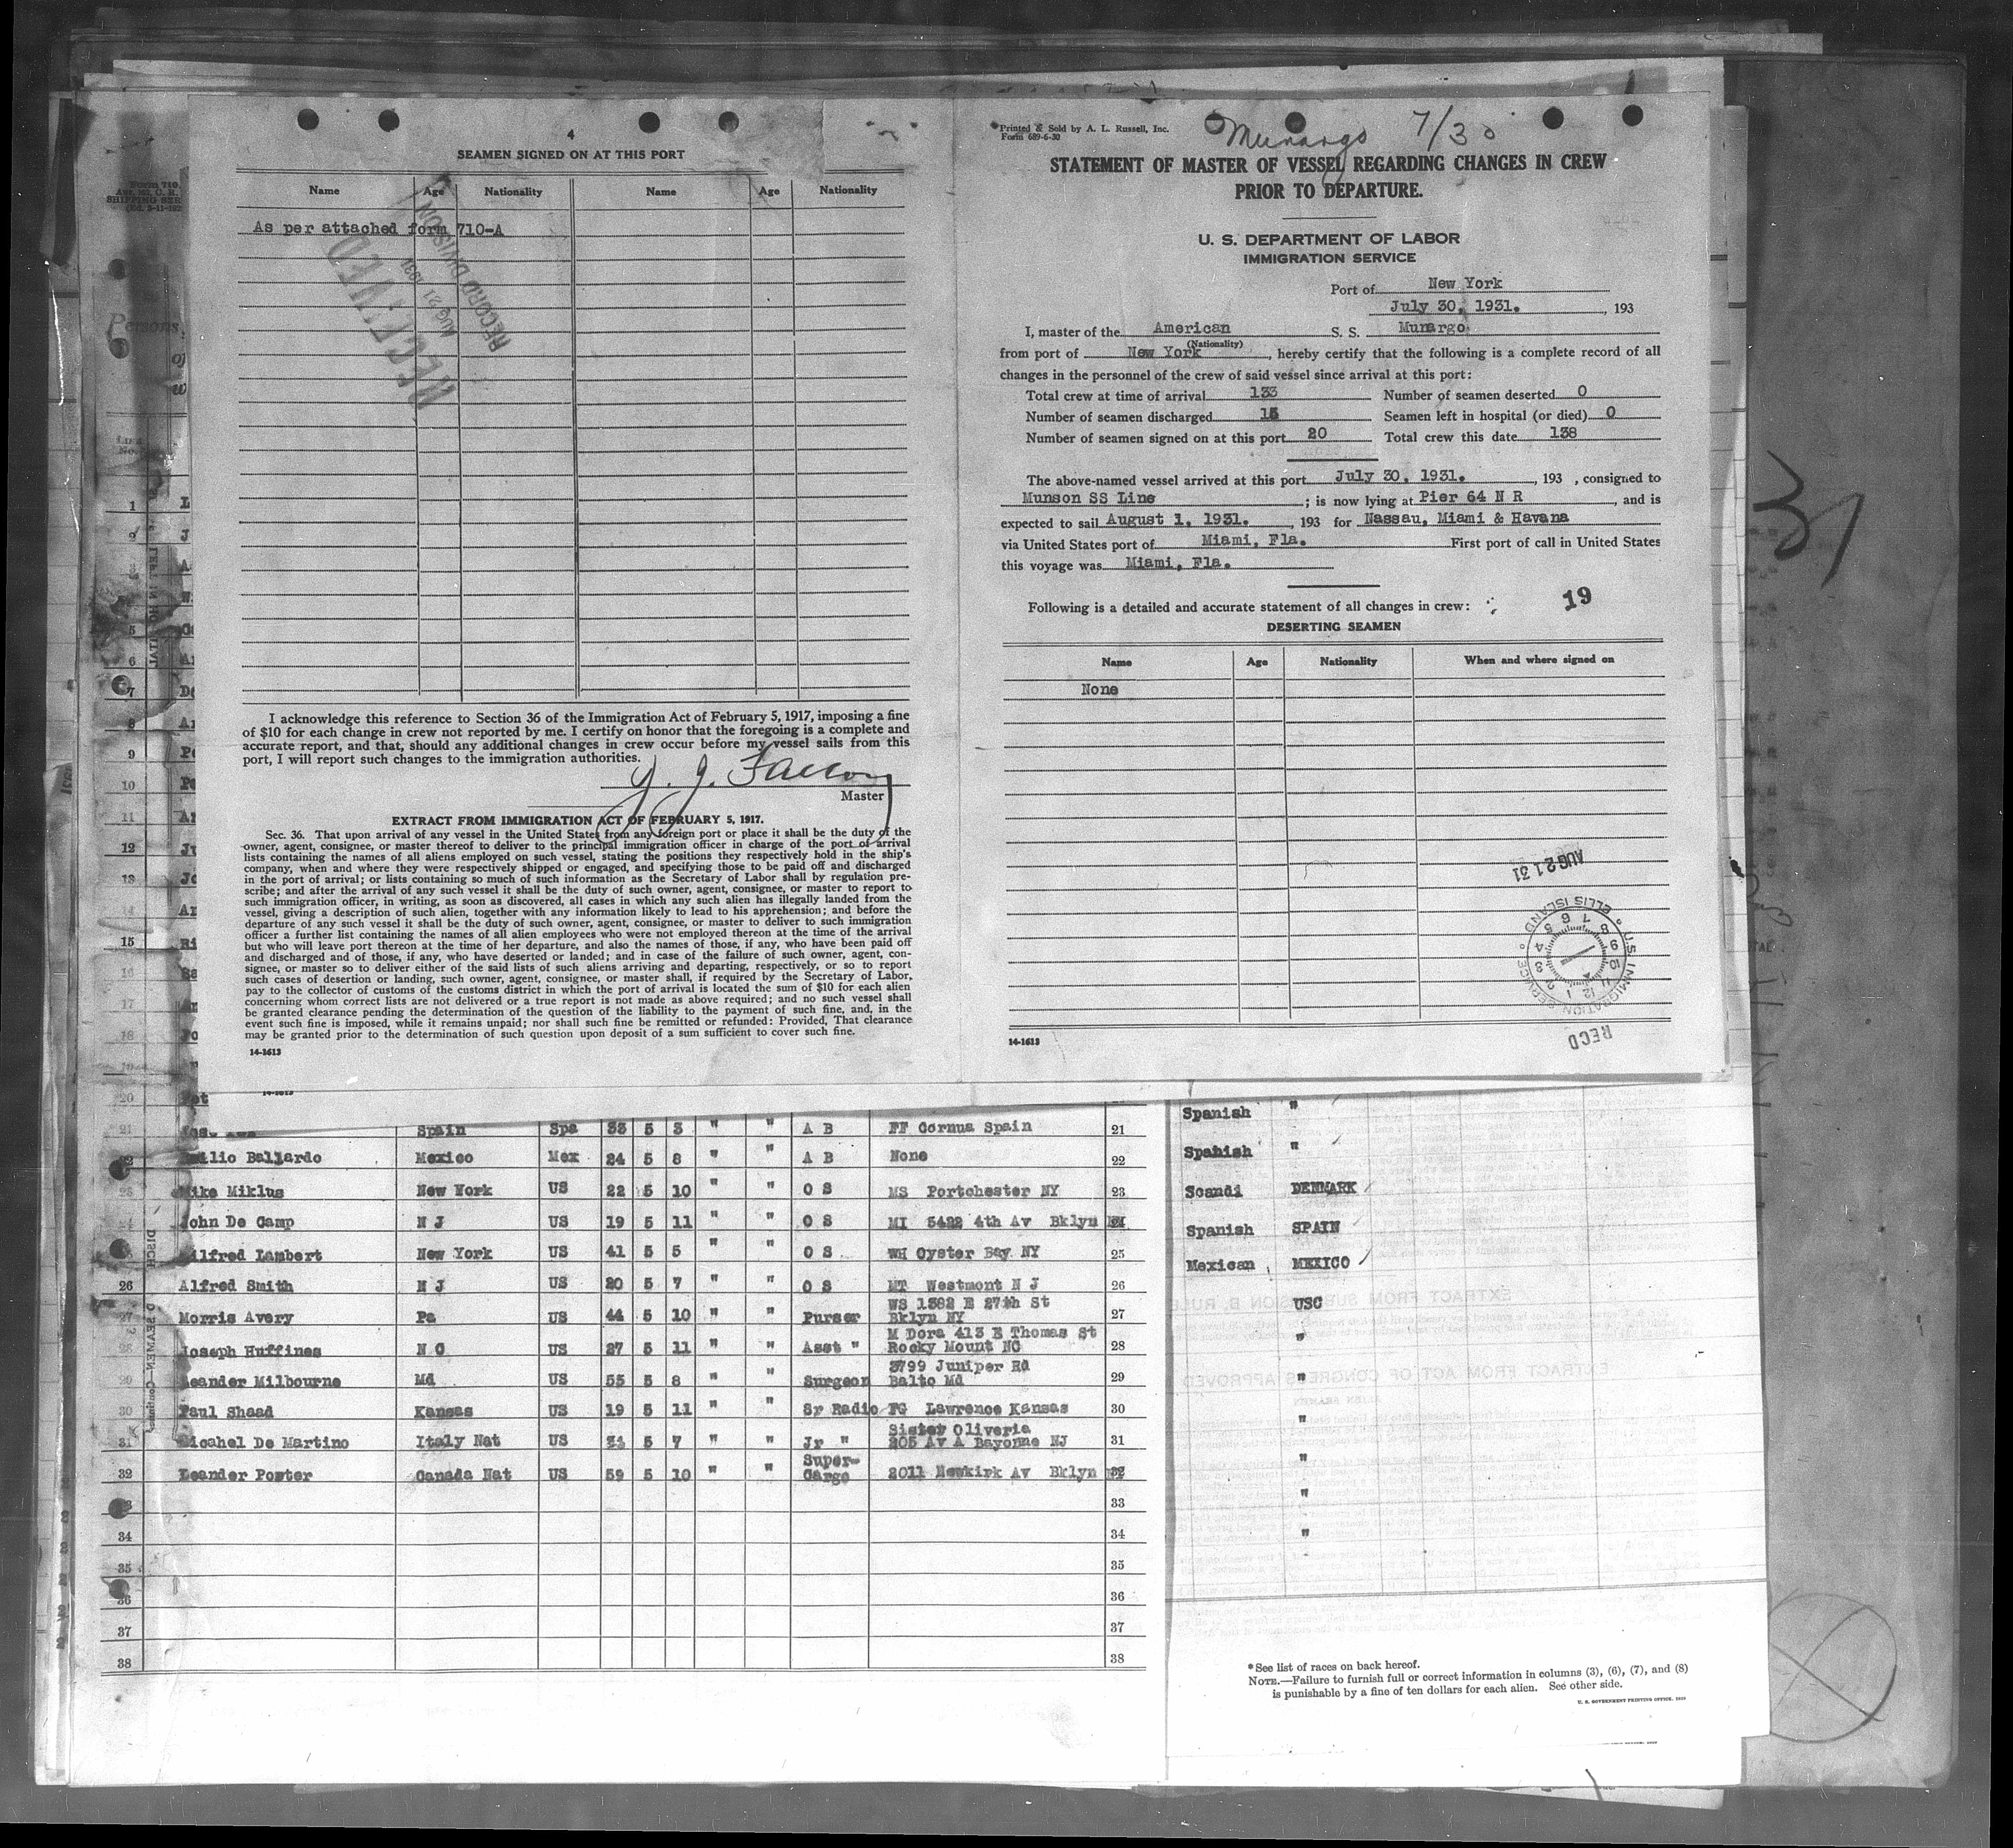 4
SEAMEN SIGNED ON AT THIS PORT
Name Age Nationality Name Age Nationality
As per attached form 710-A
RECEIVED
AUG 21 1931
RECORD DIVISION
I acknowledge this reference to Section 36 of the Immigration Act of February 5, 1917, imposing a fine
of $10 for each change in crew not reported by me. I certify on honor that the foregoing is a complete and
accurate report, and that, should any additional changes in crew occur before my vessel sails from this
port, I will report such changes to the immigration authorities.
Master
EXTRACT FROM IMMIGRATION ACT OF FEBRUARY 5, 1917.
Sec. 36. That upon arrival of any vessel in the United States from any foreign port or place it shall be the duty of the
owner, agent, consignee, or master thereof to deliver to the principal immigration officer in charge of the port of arrival
lists containing the names of all aliens employed on such vessel, stating the positions they respectively hold in the ship's
company, when and where they were respectively shipped or engaged, and specifying those to be paid off and discharged
in the port of arrival; or lists containing so much of such information as the Secretary of Labor shall by regulation pre-
scribe; and after the arrival of any such vessel it shall be the duty of such owner, agent, consignee, or master to report to
such immigration officer, in writing, as soon as discovered, all cases in which any such alien has illegally landed from the
vessel, giving a description of such alien, together with any information likely to lead to his apprehension; and before the
departure of any such vessel it shall be the duty of such owner, agent, consignee, or master to deliver to such immigration
officer a further list containing the names of all alien employees who were not employed thereon at the time of the arrival
but who will leave port thereon at the time of her departure, and also the names of those, if any, who have been paid off
and discharged and of those, if any, who have deserted or landed; and in case of the failure of such owner, agent, con-
signee, or master so to deliver either of the said lists of such aliens arriving and departing, respectively, or so to report
such cases of desertion or landing, such owner, agent, consignee, or master shall, if required by the Secretary of Labor,
pay to the collector of customs of the customs district in which the port of arrival is located the sum of $10 for each alien
concerning whom correct lists are not delivered or a true report is not made as above required; and no such vessel shall
be granted clearance pending the determination of the question of the liability to the payment of such fine, and, in the
event such fine is imposed, while it remains unpaid; nor shall such fine be remitted or refunded: Provided, That clearance
may be granted prior to the determination of such question upon deposit of a sum sufficient to cover such fine.
14-1613
Printed & Sold by A. L. Russell, Inc.
Form 689-6-30
Munargo 7/30
STATEMENT OF MASTER OF VESSEL REGARDING CHANGES IN CREW
PRIOR TO DEPARTURE.
U. S. DEPARTMENT OF LABOR
IMMIGRATION SERVICE
Port of New York
July 30, 1931. , 193
I, master of the American S. S. Munargo
(Nationality)
from port of New York, hereby certify that the following is a complete record of all
changes in the personnel of the crew of said vessel since arrival at this port:
Total crew at time of arrival 133 Number of seamen deserted 0
Number of seamen discharged 15 Seamen left in hospital (or died) 0
Number of seamen signed on at this port 20 Total crew this date 138
The above-named vessel arrived at this port July 30, 1931. , 193 , consigned to
Munson SS Line ; is now lying at Pier 64 N R , and is
expected to sail August 1, 1931. , 193 for Nassau, Miami & Havana
via United States port of Miami, Fla. First port of call in United States
this voyage was Miami, Fla.
Following is a detailed and accurate statement of all changes in crew: 19
DESERTING SEAMEN
Name Age Nationality When and where signed on
None
AUG 21 31
U.S. IMMIGRATION SERVICE
ELLIS ISLAND
RECD
14-1613
31
21 Spain Spa 33 5 3 " " A B FF Cornua Spain 21
22 Emilio Ballardo Mexico Mex 24 5 8 " " A B None 22
23 Mike Miklus New York US 22 5 10 " " O S MS Portchester NY 23
24 John De Camp N J US 19 5 11 " " O S MI 5422 4th Av Bklyn
25 Wilfred Lambert New York US 41 5 5 " " O S WH Oyster Bay NY 25
26 Alfred Smith N J US 20 5 7 " " O S MT Westmont N J 26
27 Morris Avery Pa US 44 5 10 " " Purser WS 1382 E 27th St Bklyn NY 27
28 Joseph Huffines N C US 27 5 11 " " Asst " M Dora 413 E Thomas St Rocky Mount NC 28
29 Leander Milbourne Md US 55 5 8 " Surgeon 3799 Juniper Rd Balto Md 29
30 Paul Shaad Kansas US 19 5 11 " " Sr Radio FG Lawrence Kansas 30
31 Micahel De Martino Italy Nat US 5 7 " " Jr " Sister Oliveria 205 Av A Bayonne NJ 31
32 Leander Porter Canada Nat US 59 5 10 " " Super-Cargo 2011 Newkirk Av Bklyn
33 33
34 34
35 35
36 36
37 37
38 38
Spanish "
Spanish "
Scandi DENMARK
Spanish SPAIN
Mexican MEXICO
USC
"
"
"
"
"
"
*See list of races on back hereof.
NOTE.—Failure to furnish full or correct information in columns (3), (6), (7), and (8)
is punishable by a fine of ten dollars for each alien. See other side.
U. S. GOVERNMENT PRINTING OFFICE